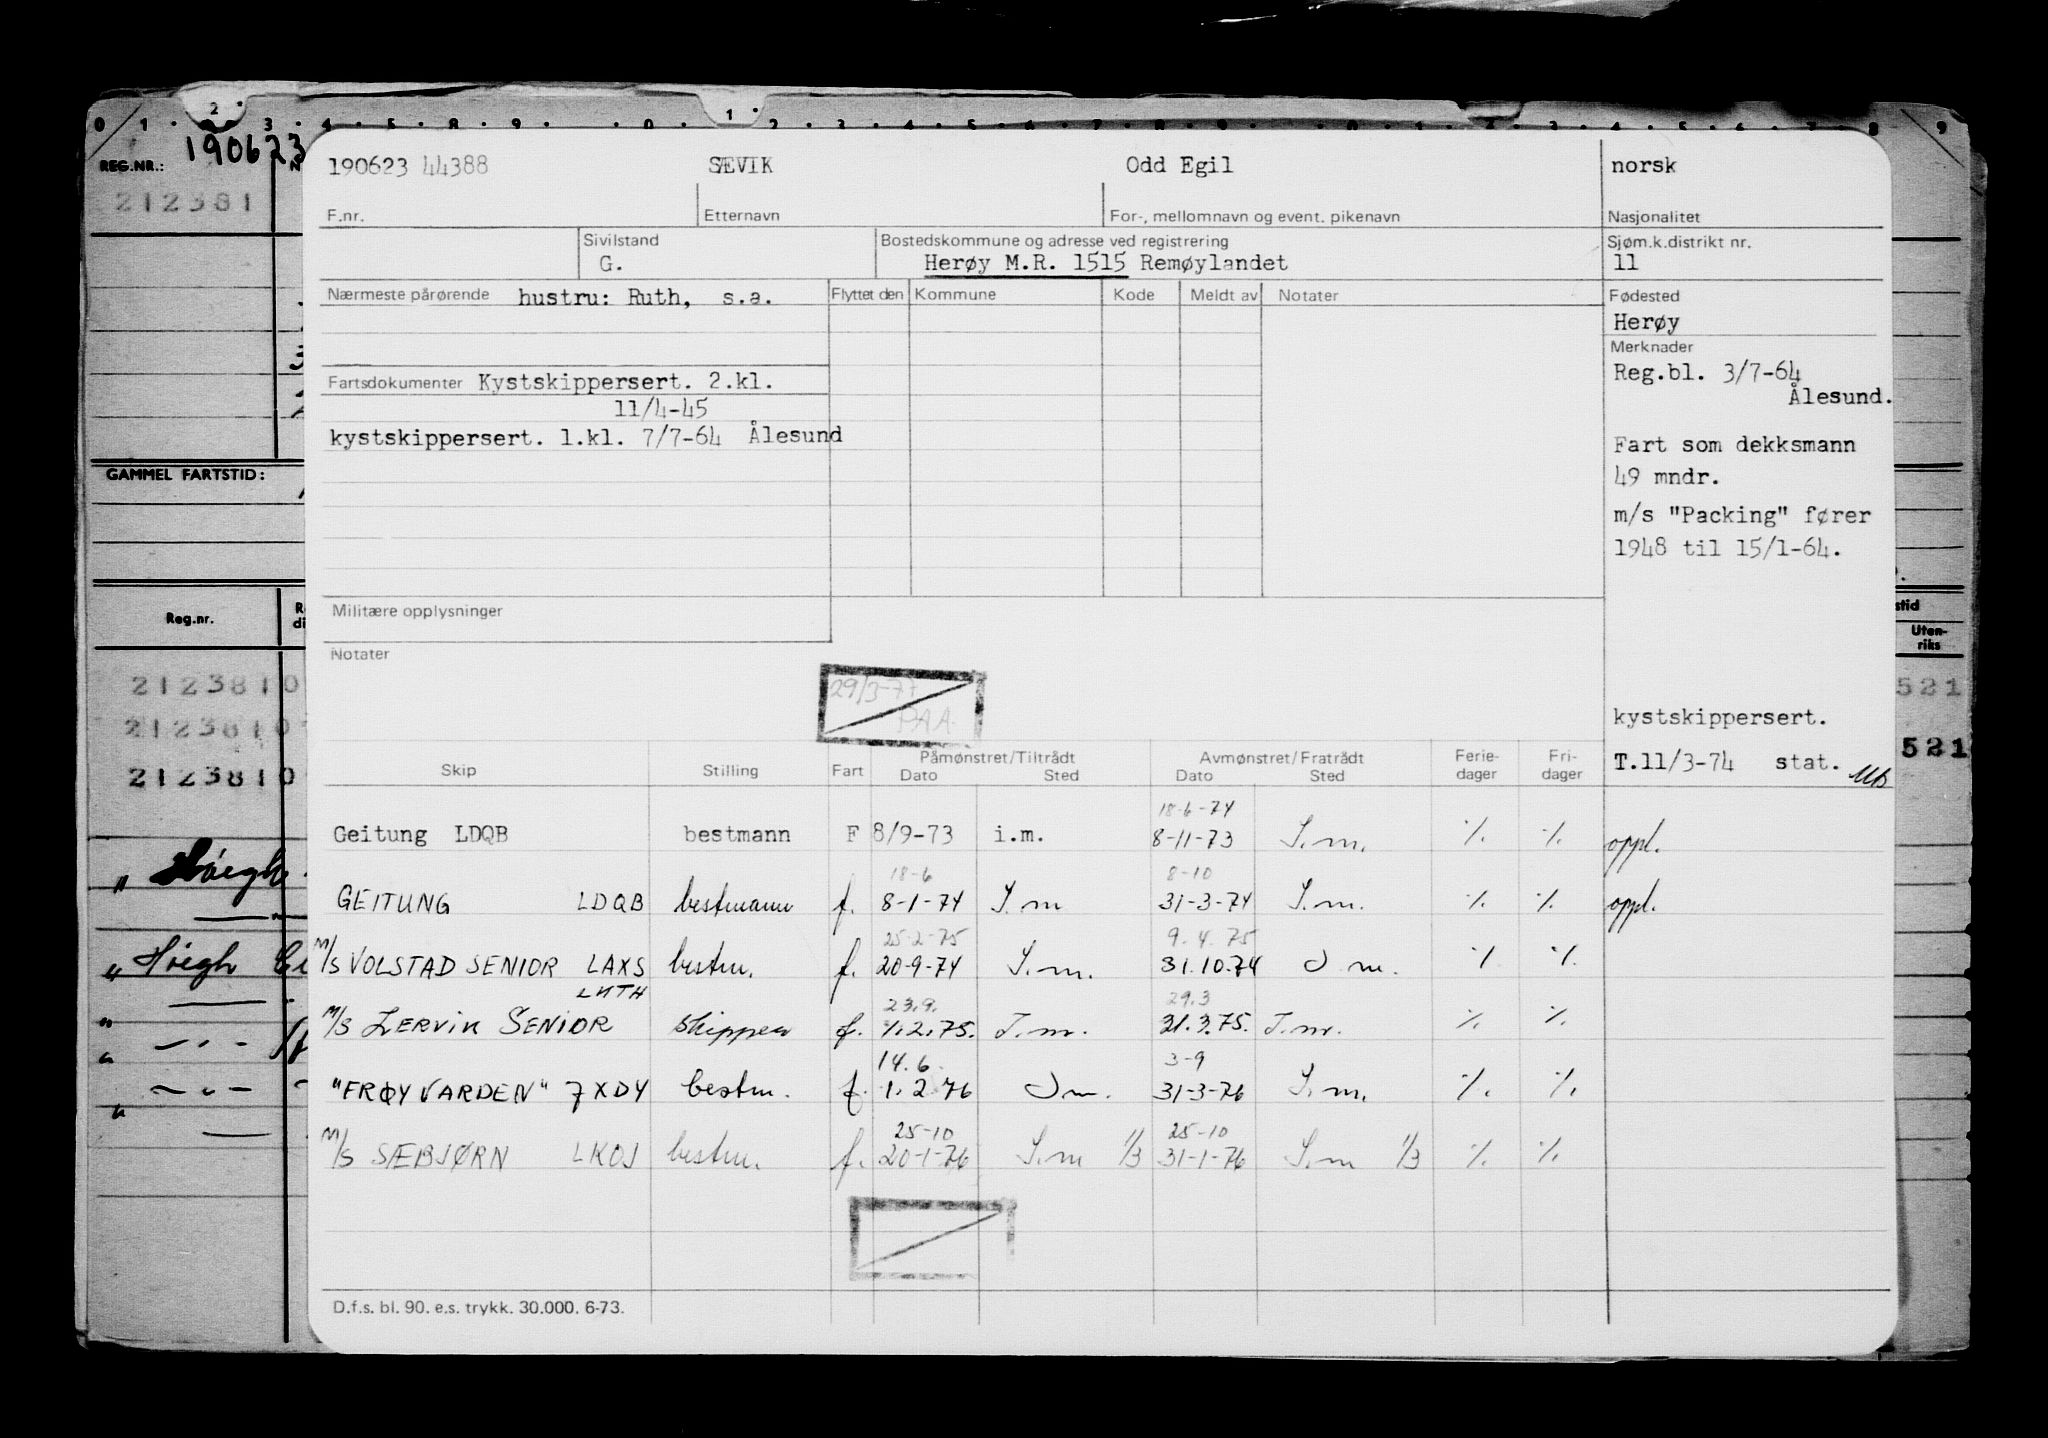 0 1 2 3 4 5 8 9 0 1 2 3 4 5 6 7 8 9 0 1 2 3 4 5 7 8 9
REG.NR.: 190623
212381
GAMMEL FARTSTID:
Reg.nr.
2123810
2123810
2123810
" Höegh
" Höegh
190623 44388 SÆVIK Odd Egil norsk
F.nr. Etternavn For-, mellomnavn og event. pikenavn Nasjonalitet
Sivilstand Bostedskommune og adresse ved registrering Sjøm.k.distrikt nr.
G. Herøy M.R. 1515 Remøylandet 11
Nærmeste pårørende hustru: Ruth, s.a. Flyttet den Kommune Kode Meldt av Notater Fødested
Herøy
Merknader
Fartsdokumenter Kystskippersert. 2.kl. Reg.bl. 3/7-64
11/4-45 Ålesund.
kystskippersert. 1.kl. 7/7-64 Ålesund Fart som dekksmann
49 mndr.
m/s "Packing" fører
1948 til 15/1-64.
Militære opplysninger
Notater
29/3-77
PAA.
kystskippersert.
T.11/3-74 stat.
Skip Stilling Fart Påmønstret/Tiltrådt Avmønstret/Fratrådt Ferie-dager Fri-dager
Dato Sted Dato Sted
18-6-74
Geitung LDQB bestmann F 8/9-73 i.m. 8-11-73 I.m. % % oppl.
18-6 8-10
GEITUNG LDQB bestmann f. 8-1-74 I.m 31-3-74 I.m. % % oppl.
25-2-75 9.4.75
M/S VOLSTAD SENIOR LAXS bestm. f. 20-9-74 I.m. 31.10.74 I m. % %
LNTH 23.9. 29.3
M/S LERVIK SENIOR skipper f. 1.2.75. I.m. 31.3.75. I.m. % %
14.6. 3-9
"FRØYVARDEN" 7XDY bestm. f. 1.2.76 I m. 31-3-76 I.m. % %
25-10 25-10
M/S SÆBJØRN LKOJ bestm. f. 20-1-76 I.m 1/3 31-1-76 I.m 1/3 % %
D.f.s. bl. 90. e.s. trykk. 30.000. 6-73.
Uten-
riks
521
521